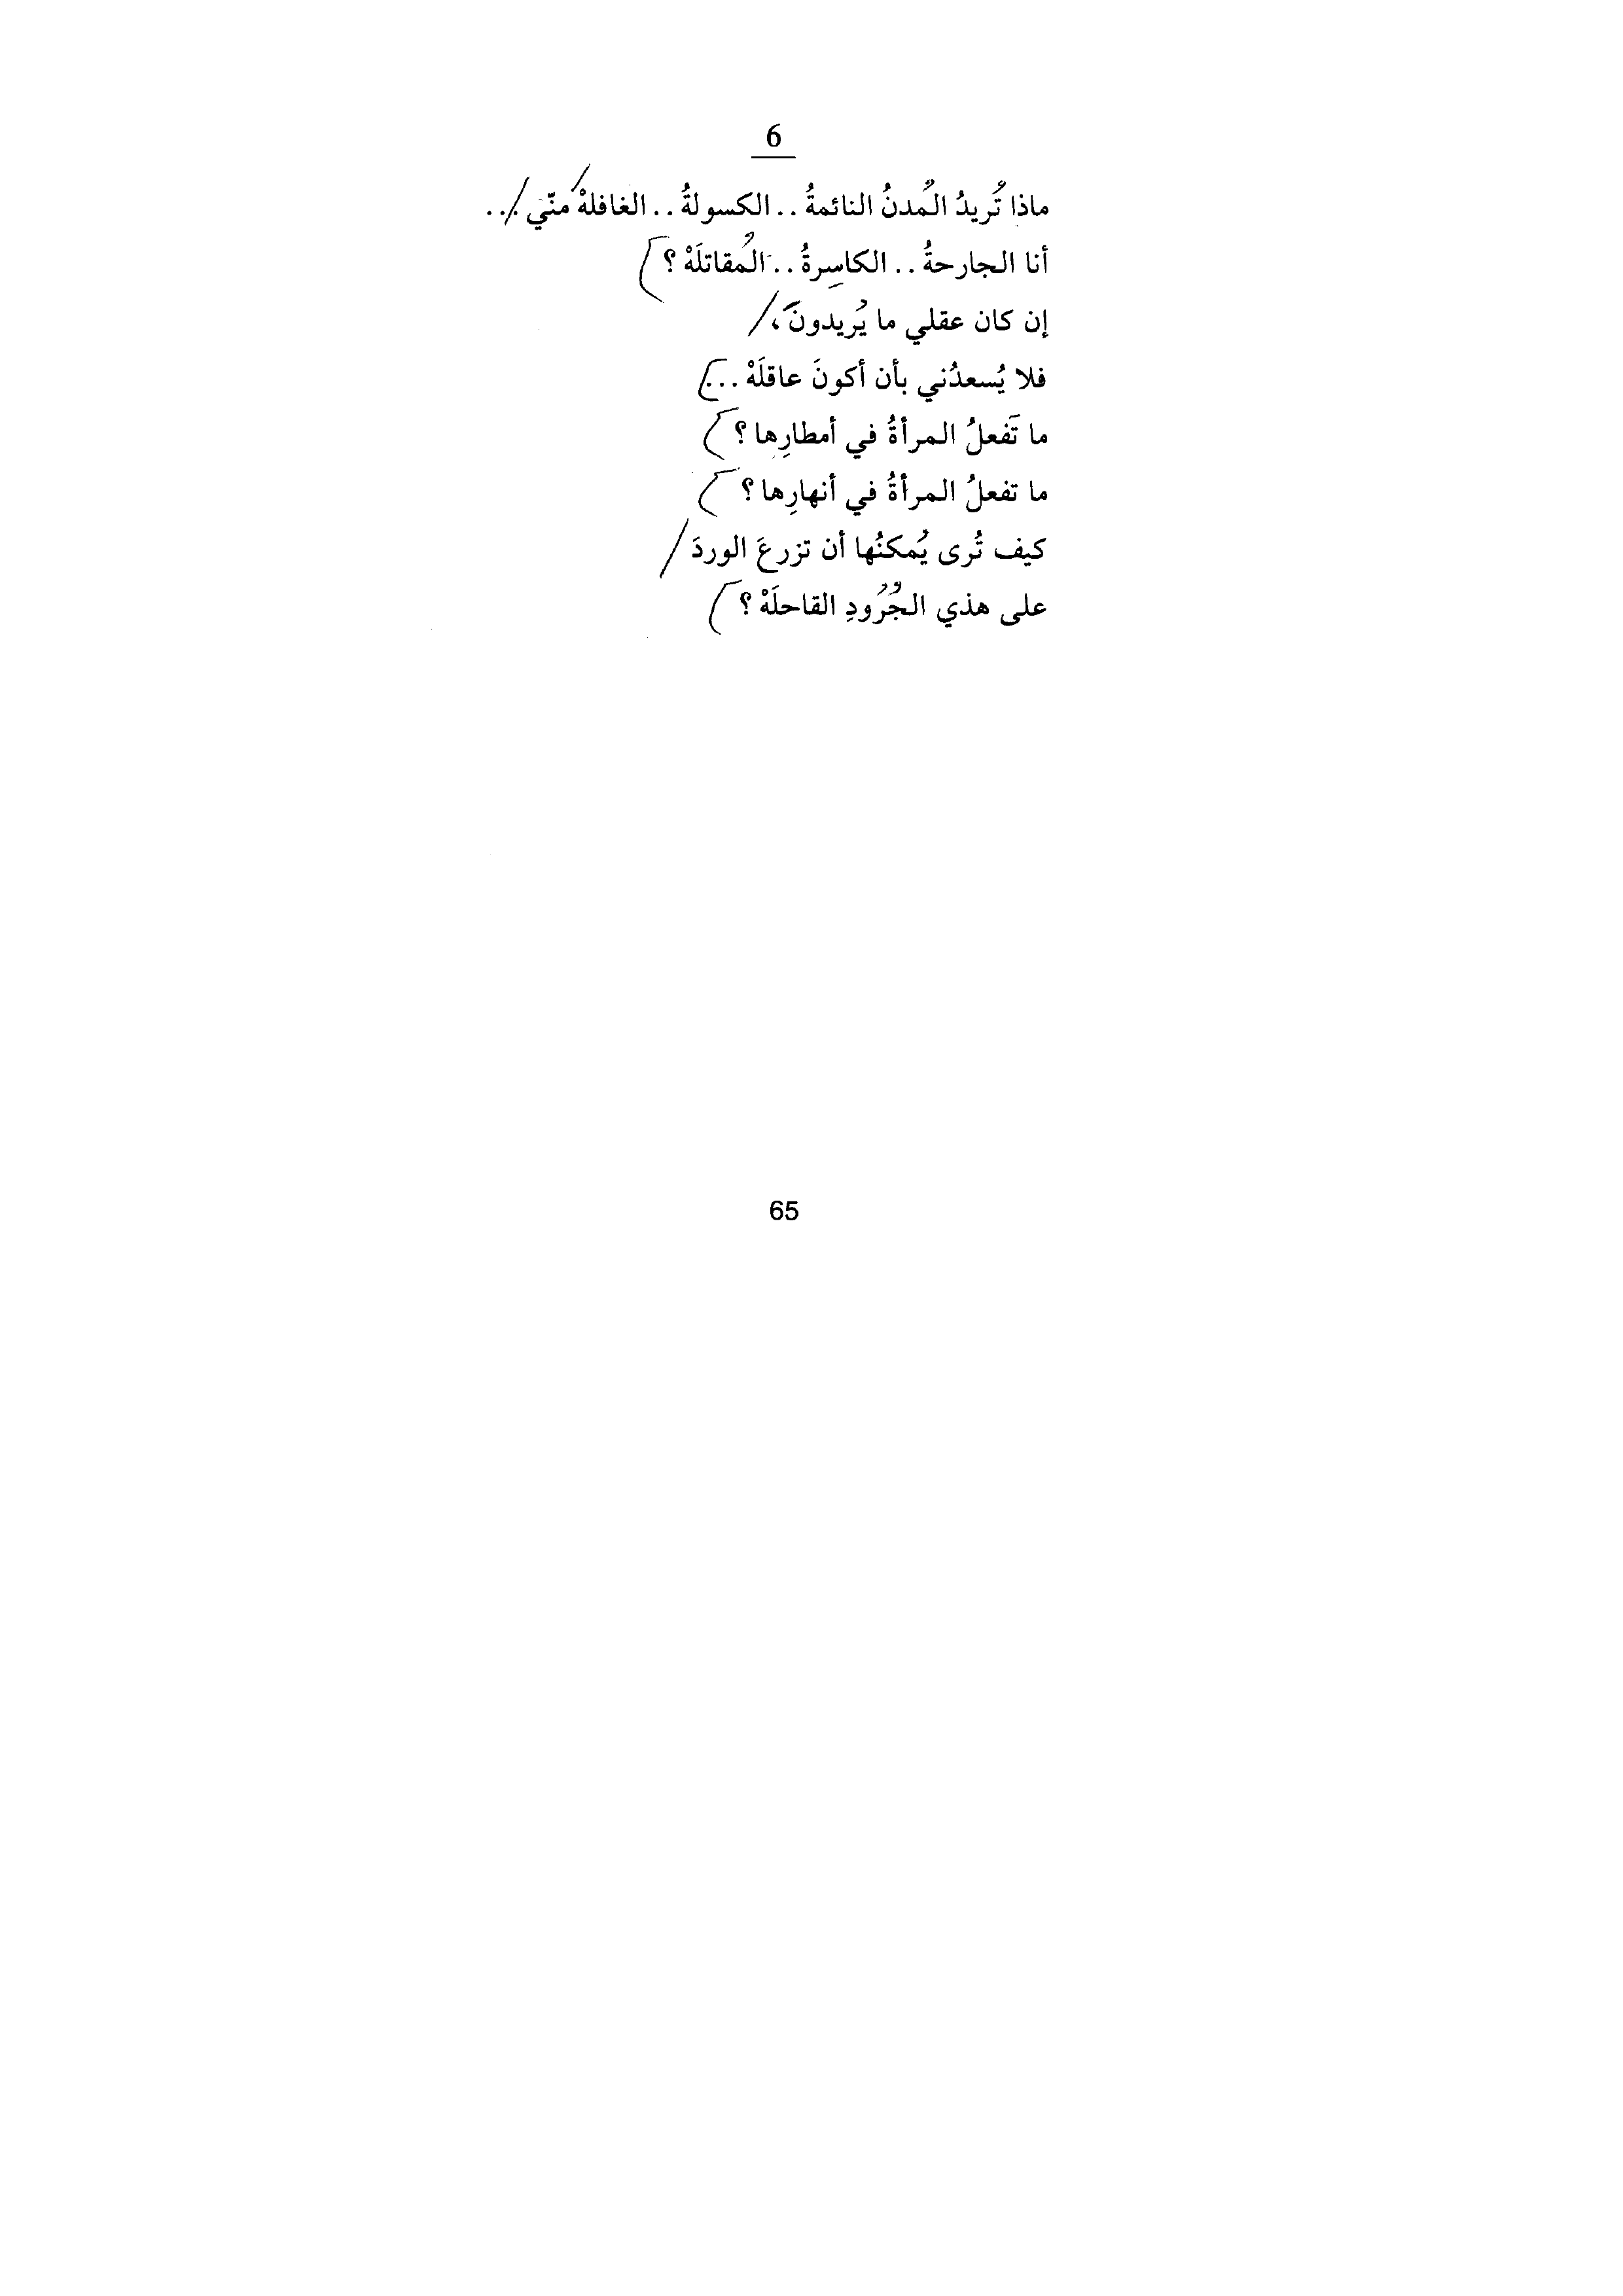 6
ماذا تُريدُ المُدنُ النائمةُ .. الكسولةُ .. الغافلهْ منّي ...
أنا الجارحةُ .. الكاسِرةُ .. المُقاتلَهْ ؟
إن كان عقلي ما يُريدونَ ،
فلا يُسعدُني بأن أكونَ عاقلَهْ ...
ما تَفعلُ المرأةُ في أمطارِها ؟
ما تفعلُ المرأةُ في أنهارِها ؟
كيف تُرى يُمكنُها أن تزرعَ الوردَ
على هذي الجُرُودِ القاحلَهْ ؟
65